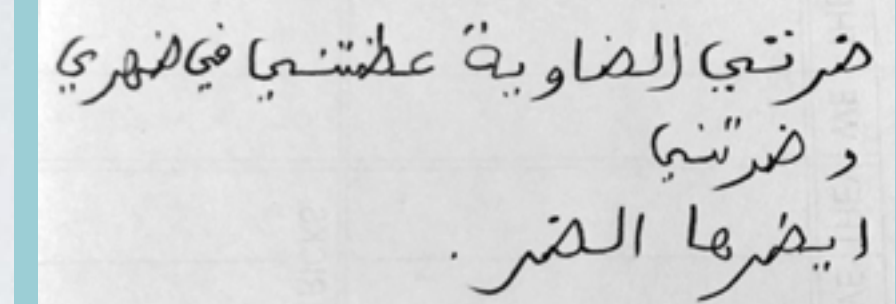 ضرتني الضاوية عضتني في ضهري
و ضرتني
ايضرها الضر .